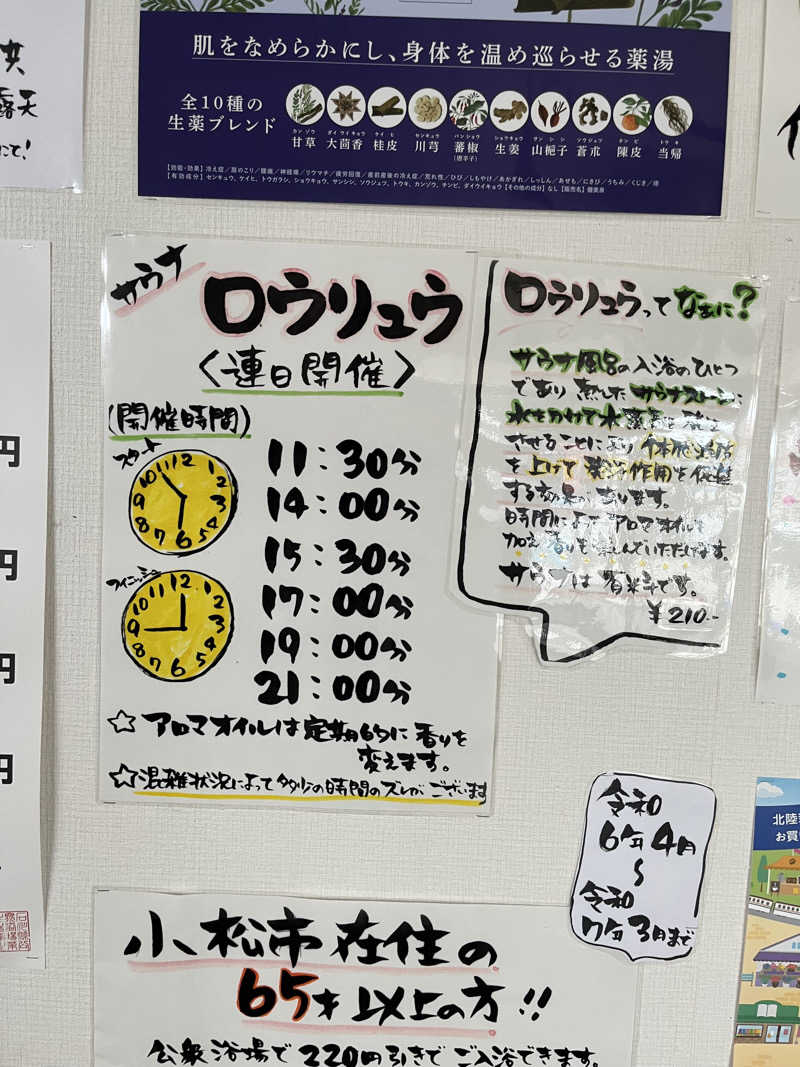 共
露天
にて!
肌をなめらかにし、身体を温め巡らせる薬湯
全10種の
生薬ブレンド
カンゾウ ダイウイキョウ ケイヒ センキュウ バンショウ ショウキョウ サンシシ ソウジュツ チンピ トウキ
甘草 大茴香 桂皮 川芎 蕃椒 生姜 山梔子 蒼朮 陳皮 当帰
(唐辛子)
【効能・効果】冷え症/肩のこり/腰痛/神経痛/リウマチ/疲労回復/産前産後の冷え症/荒れ性/ひび/しもやけ/あかぎれ/しっしん/あせも/にきび/うちみ/くじき/痔
【有効成分】センキュウ、ケイヒ、トウガラシ、ショウキョウ、サンシシ、ソウジュツ、トウキ、カンゾウ、チンピ、ダイウイキョウ【その他の成分】なし
サウナ
ロウリュウ
〈連日開催〉
(開催時間)
スタート
12 1 2 3 4 5 6 7 8 9 10 11
フィニッシュ
12 1 2 3 4 5 6 7 8 9 10 11
11:30分
14:00分
15:30分
17:00分
19:00分
21:00分
☆アロマオイルは定期的に香りを
変えます。
☆混雑状況によって多少の時間のズレがございます
ロウリュウってなぁに?
サウナ風呂の入浴のひとつ
であり熱したサウナストーンに
水をかけて水蒸気を発生
させることにより体感温度
を上げて発汗作用を促進
する効果があります。
時間によってアロマオイルを
加え香りも楽しんでいただけます。
サウナは有料です。
¥210.-
円
円
円
円
令和
6年4月
～
令和
7年3月まで
小松市在住の
65才以上の方!!
公衆浴場で220円引きでご入浴できます。
北陸
お買